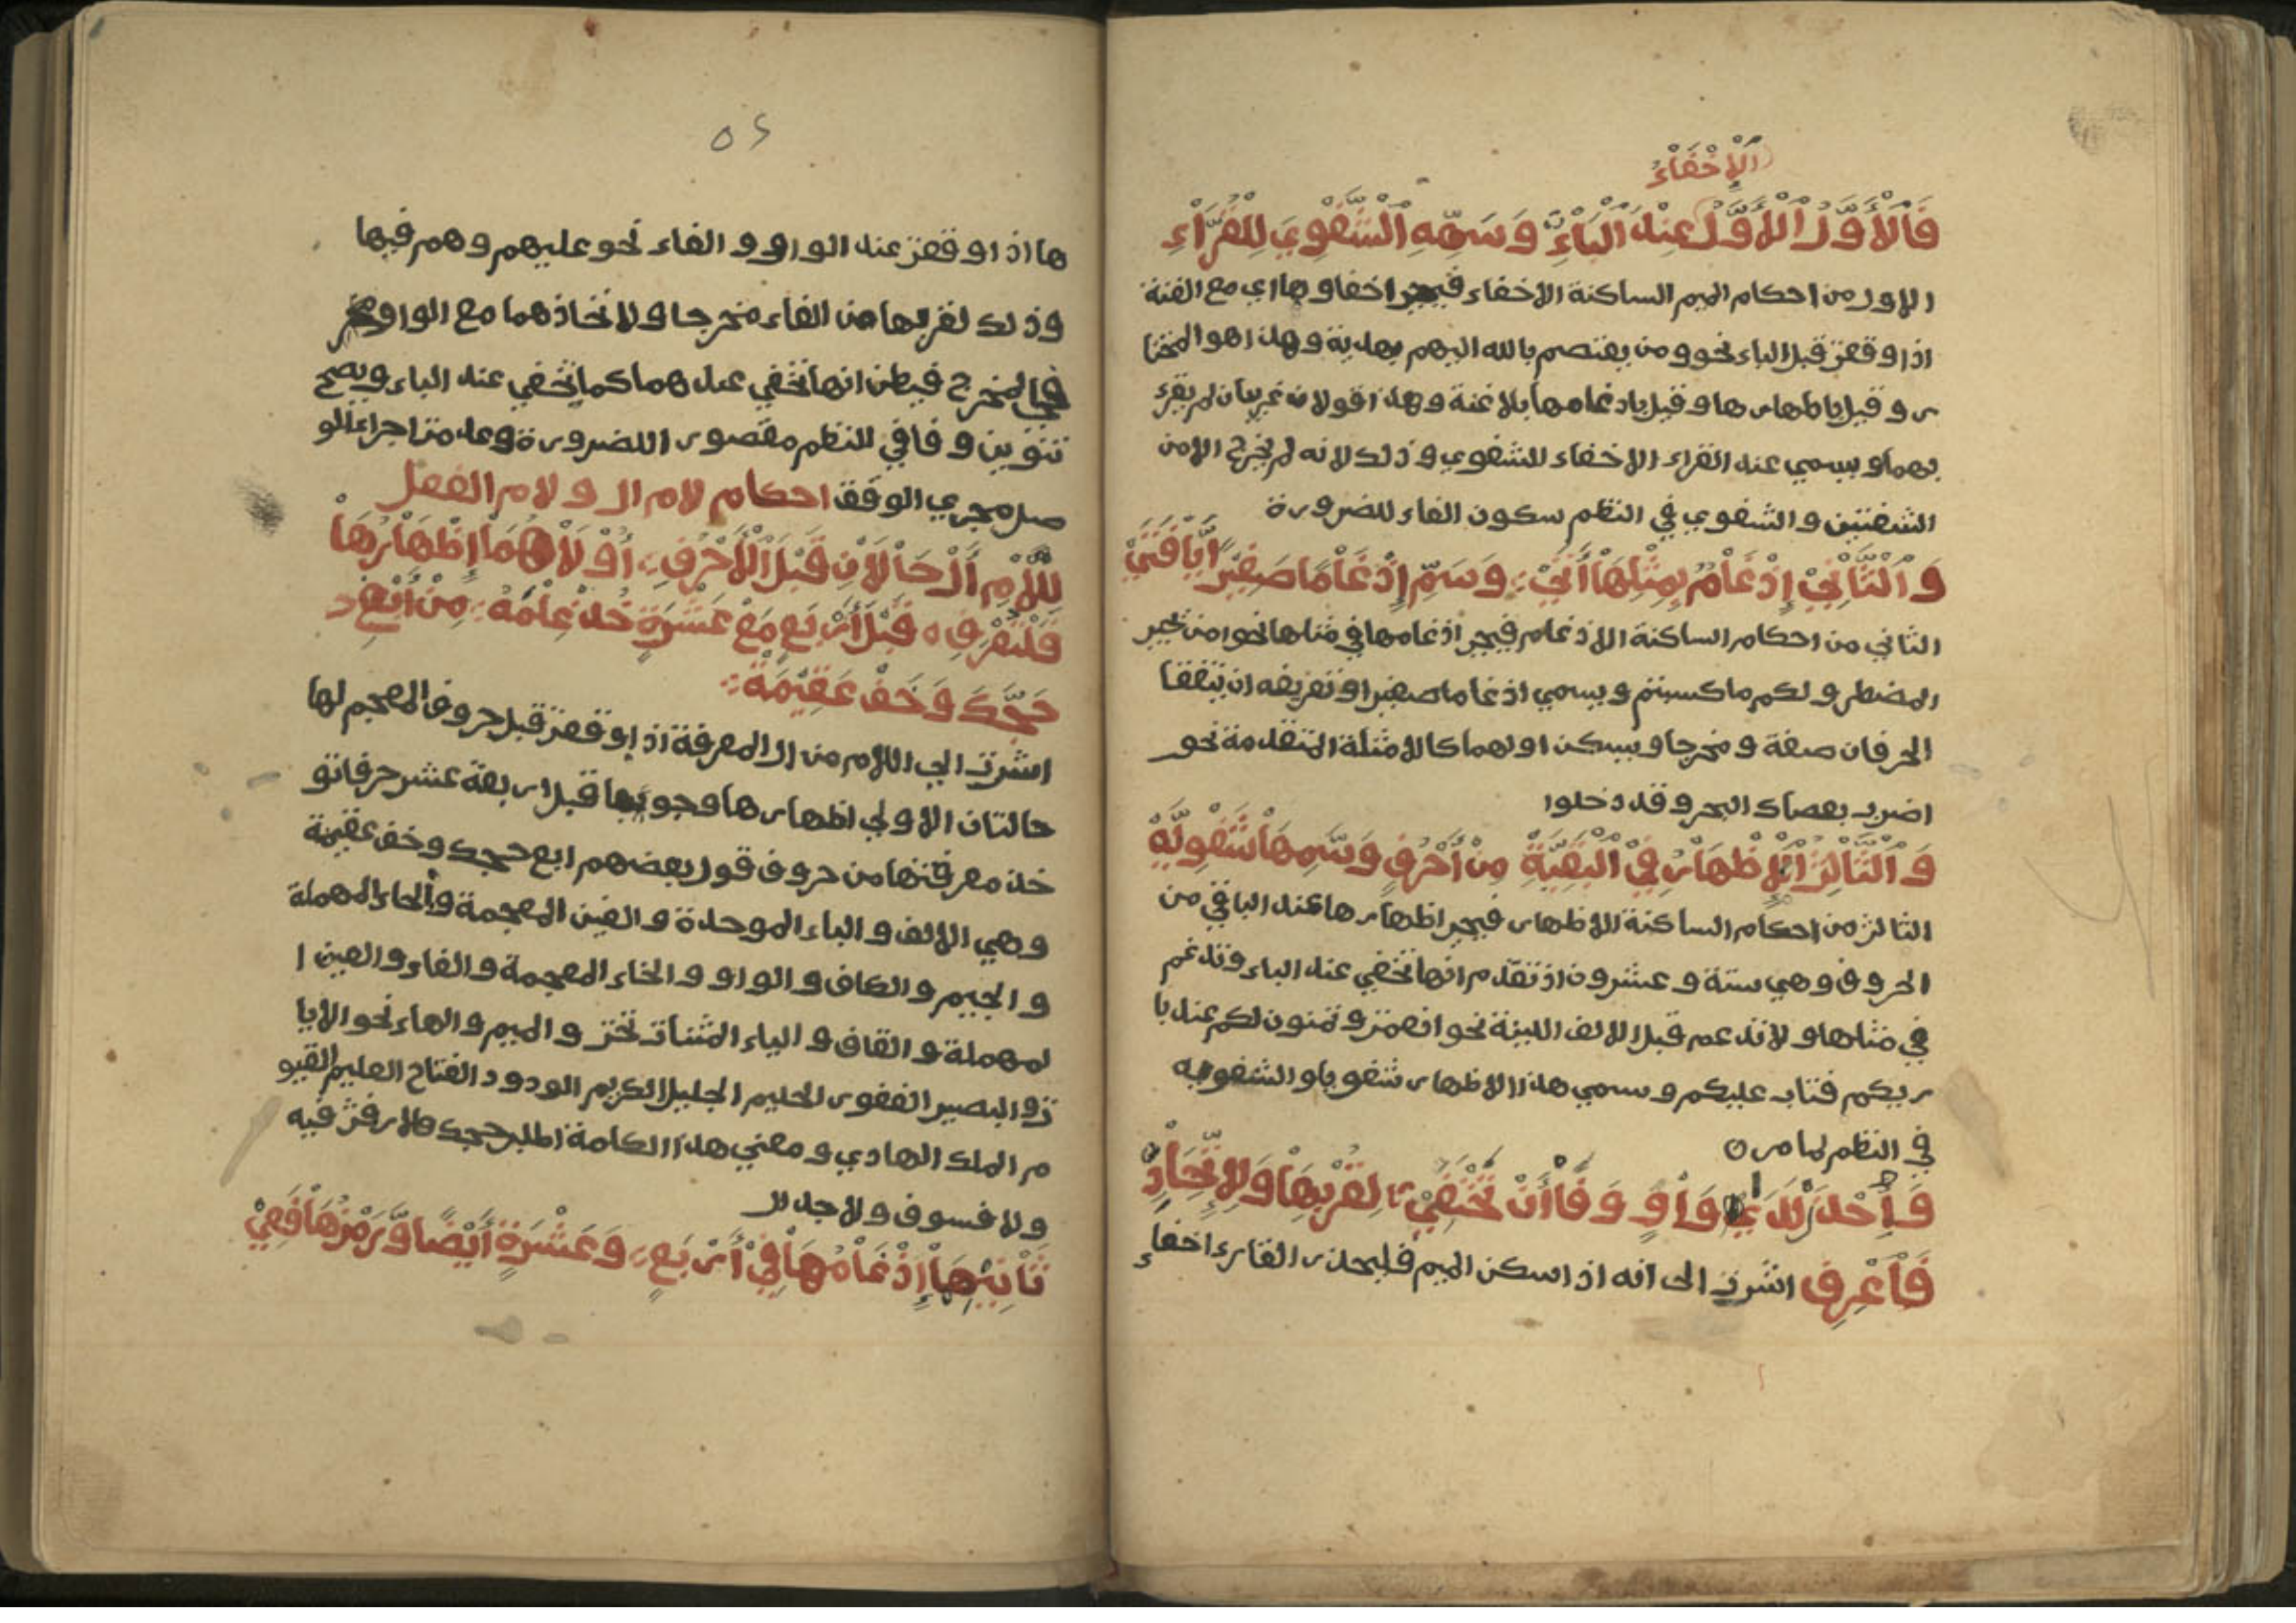 الْإِخْفَاءُ
فَالْأَوَّلُ الْأَوَّلُ عِنْدَ الْبَاءِ وَسَمِّهِ الشَّفْوِيَّ لِلْقُرَّاءِ
الاول من احكام الميم الساكنة الاخفاء فيجب اخفاوها اي مع الغنة
اذا وقعت قبل الباء نحو ومن يعتصم بالله اليهم بهدية وهذا هو المختا
ر وقيل باظهارها وقيل بادغامها بلا غنة وهذا قولان غريبان لم يقرء
بهما ويسمي عند القراء الاخفاء الشفوي وذلك لانه لم يخرج الا من
الشفتين والشفوي في النظم سكون الفاء للضرورة
وَالثَّانِيْ إِدْغَامٌ بِمِثْلِهَا أَتَى وَسَمِّ إِدْغَامًا صَغِيْرًا يَا فَتَى
الثاني من احكام الساكنة الادغام فيجب ادغامها في مثلها نحو امن يجيب
المضطر ولكم ما كسبتم ويسمي ادغاما صغيرا وتعريفه ان يتفقا
الحرفان صفة ومخرجا ويسكن اولهما كالامثلة المتقدمة نحو
اضرب بعصاك البحر وقد دخلوا
وَالثَّالِثُ الْإِظْهَارُ فِيْ الْبَقِيَّةْ مِنْ أَحْرُفٍ وَسَمِّهَا شَفْوِيَّةْ
الثالث من احكام الساكنة الاظهار فيجب اظهارها عند الباقي من
الحروف وهي ستة وعشرون اذ تقدم انها تخفي عند الباء وتدغم
في مثلها ولا تدغم قبل الالف اللينة نحو انعمت وتمنون لكم عند با
ريكم فتاب عليكم وسمي هذا الاظهار شفويا والشفويه
في النظم لما مر ه
وَاحْذَرْ لَدَى وَاوٍ وَفَا أَنْ تَخْتَفِيْ لِقُرْبِهَا وَلِاتِّحَادِ
فَاعْرِفِ اشرت الى انه اذا سكن الميم فليحذر القارء اخفاء
٥٢
ها اذا وقعت عند الواو والفاء نحو عليهم وهم فيها
وذلك لقربها من الفاء مخرجا ولاتحادهما مع الواو
في المخرج فيظن انها تخفي عندهما كما تخفي عند الباء ويصح
تنوين وفا في النظم مقصورا للضرورة وعدمة اجراء للو
صل مجري الوقف احكام لام ال ولام الفعل
لِلَامِ أَلْ حَالَانِ قَبْلَ الْأَحْرُفِ أُوْلَاهُمَا إِظْهَارُهَا
فَلْتَعْرِفِ ه قَبْلَ أَرْبَعٍ مَعْ عَشْرَةٍ خُذْ عِلْمَهُ مِنْ ابْغِ
حَجَّكَ وَخَفْ عَقِيْمَهُ
اشرت الي اللام من ال المعرفة اذا وقعت قبل حروف المعجم لها
حالتان الاولي اظهارها وجوبها قبل اربعة عشر حرفا تو
خذ معرفتها من حروف قول بعضهم ابغ حجك وخف عقيمة
وهي الالف والباء الموحدة والغين المعجمة والحاء المهملة
والجيم والكاف والواو والخاء المعجمة والفاء والعين ا
لمهملة والقاف والياء المثناة تحت والميم والهاء نحو الايا
ت والبصير الغفور الحليم الجليل الكريم الودود الفتاح العليم القيو
م الملك الهادي ومعني هذا الكلمة اطلب حجك لا رفث فيه
ولا فسوق ولا جدال
ثَانِيْهِمَا إِدْغَامُهَا فِيْ أَرْبَعٍ وَعَشْرَةٍ أَيْضًا وَرَمْزُهَا فَعِيْ